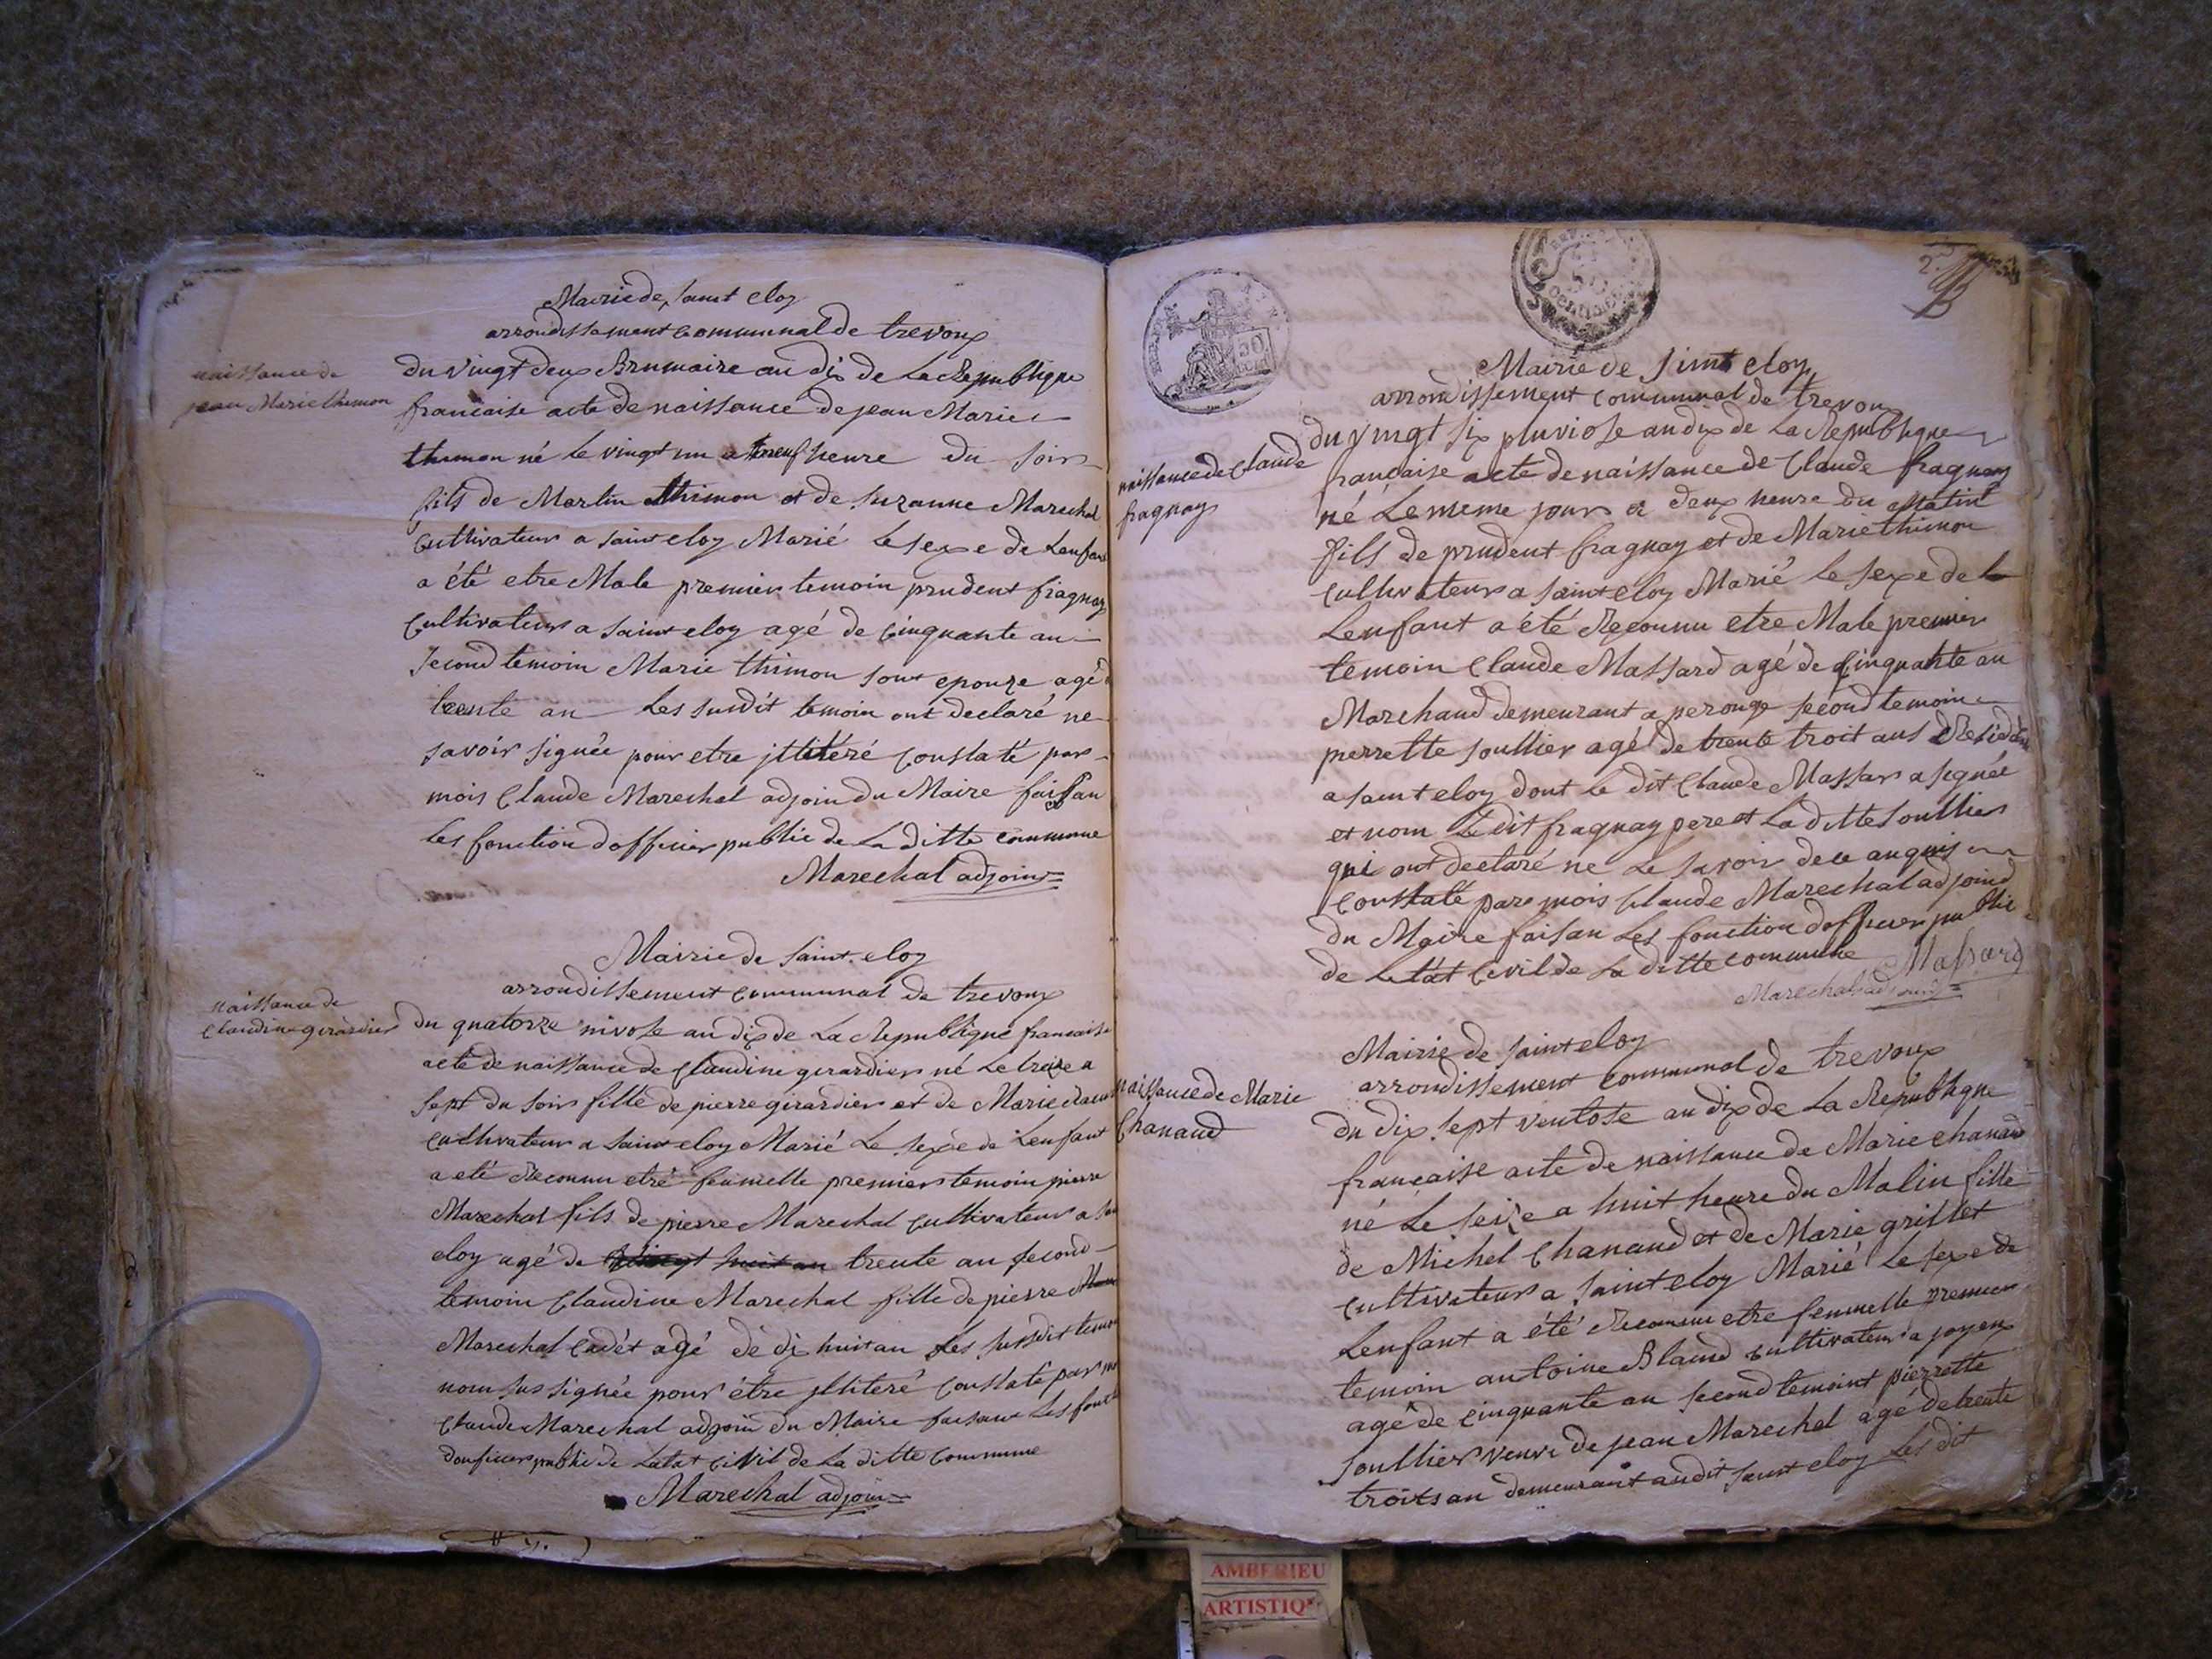 Mairie de saint eloy
arrondissement communal de trevoux
naissance de
jean Marie thimon
du vingt deux Brumaire an dix de La Republique
francaise acte de naissance de jean Marie
thimon né le vingt un a neuf heure du soir
fils de Martin thimon et de suzanne Marechal
cultivateur a saint eloy Marié le sexe de Lenfant
a été etre Male premier temoin prudent fragnay
cultivateur a saint eloy agé de cinquante an
second temoin Marie thimon sont epouze agé
trente an Les susdit temoin ont declaré ne
savoir signée pour etre jlliteré constaté par
mois Claude Marechal adjoin du Maire faisan
les fonction dofficier public de La ditte commune
Marechal adjoin
Mairie de saint eloy
arrondissement communal de trevoux
naissance de
Claudine girardier
du quatorze nivose an dix de La Republique francaise
acte de naissance de Claudine girardier né Le treize a
sept du soir fille de pierre girardier et de Marie
cultivateur a saint eloy Marié Le sexe de Lenfant
a eté Reconnu etre femmelle premier temoin pierre
Marechal fils de pierre Marechal cultivateur a
eloy agé de vingt huit an trente an second
temoin Claudine Marechal fille de pierre
Marechal Cadét agé de dix huit an Les susdit temoin
nom sus signée pour étre jlliteré constaté par
Claude Marechal adjoin du Maire faisant Les
donficier public de Letat civil de La ditte commune
Marechal adjoin
50
2
Mairie de saint eloy
arrondissement communal de trevoux
naissance de Claude
fragnay
du vingt six pluviose an dix de La Republique
francaise acte de naissance de Claude fragnay
né Le meme jour a deux heure du Matint
fils de prudent fragnay et de Marie thimon
cultivateur a saint eloy Marié le sexe de
Lenfant a été Reconnu etre Male premier
temoin Claude Massard agé de cinquante an
Marchand demeurant a perouge second temoin
pierrette soullier agé de trente troit ans
a saint eloy dont le dit Claude Massar a signée
et nom Le dit fragnay pere et La ditte soullier
qui ont declaré ne Le savoir de ce anquis
constaté pare mois Claude Marechal adjoind
du Maire faisan Les fonction dofficier public
de Letát Civil de La ditte commune Massard
Marechal adjoind
Mairie de saint eloy
arrondissement communal de trevoux
naissance de Marie
Chanaud
du dix sept ventose an dix de La Republique
francaise acte de naissance de Marie chanaud
né Le seize a huit heure du Matin fille
de Michel Chanaud et de Marie grillet
cultivateur a saint eloy Marié Le sexe de
Lenfant a été Reconnu etre femmelle premier
temoin antoine Bland cultivateur a joyeux
agé de cinquante an second temoint pierrette
soullier veuve de jean Marechal agé de trente
troits an demeurant audit saint eloy Les dit
AMBERIEU
ARTISTIQ